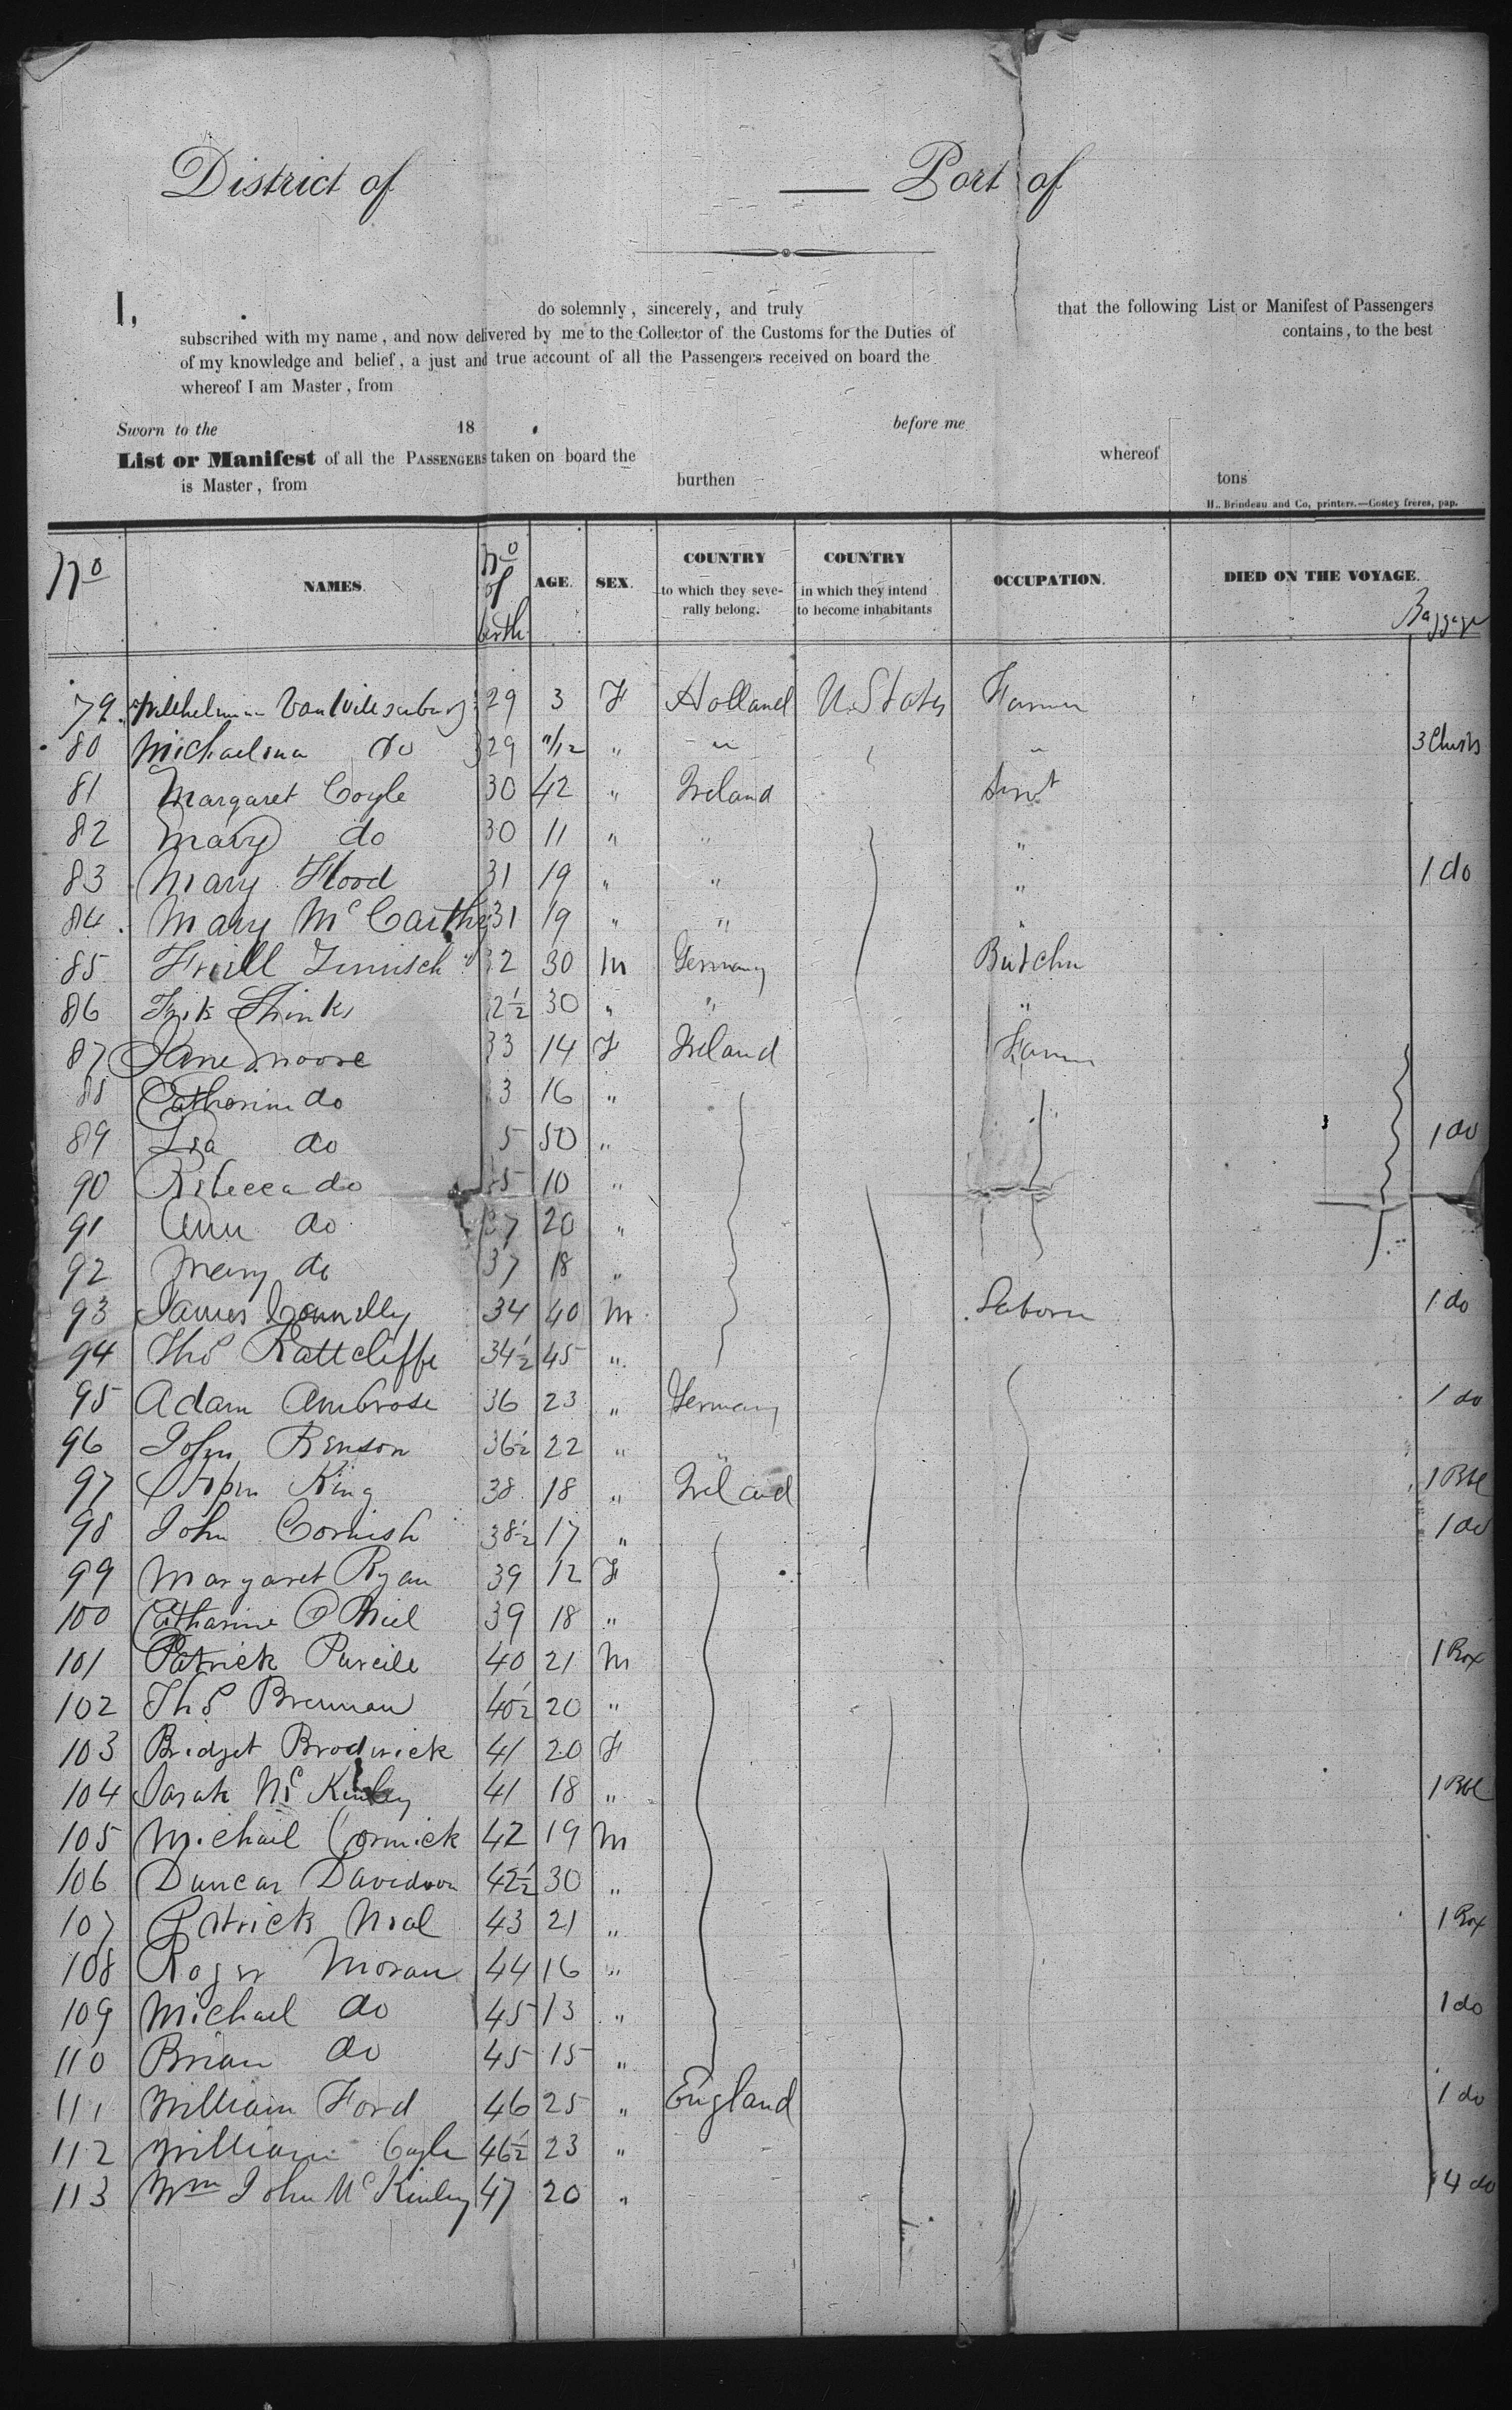 District of — Port of
I, do solemnly, sincerely, and truly that the following List or Manifest of Passengers
subscribed with my name, and now delivered by me to the Collector of the Customs for the Duties of contains, to the best
of my knowledge and belief, a just and true account of all the Passengers received on board the
whereof I am Master, from
Sworn to the 18 before me
List or Manifest of all the PASSENGERS taken on board the whereof
is Master, from burthen tons
H. Brindeau and Co, printers.—Costey frères, pap.
No NAMES. No of birth AGE. SEX. COUNTRY to which they severally belong. COUNTRY in which they intend to become inhabitants OCCUPATION. DIED ON THE VOYAGE. Baggage
79 Wilhelmina 29 3 F Holland U. States Farmer
80 Michaelina do 29 11/12 " " " 3 Chests
81 Margaret Coyle 30 42 " Ireland Servt
82 Mary do 30 11 " " "
83 Mary Flood 31 19 " " " 1 do
84 Mary McCarthy 31 19 " " "
85 32 30 M Germany Butcher
86 32½ 30 " " "
87 Jane Moore 33 14 F Ireland Farmer
88 Catharine do 33 16 "
89 do 50 " 1 do
90 Rebecca do 35 10 "
91 Ann do 37 20 "
92 Mary do 37 18 "
93 James Connelly 34 40 M Laborer 1 do
94 Thos Rattcliffe 34½ 45 "
95 Adam Ambrose 36 23 " Germany 1 do
96 John Benson 36½ 22 " "
97 King 38 18 " Ireland 1 Bbl
98 John Cornish 38½ 17 " 1 do
99 Margaret Ryan 39 12 F
100 Catharine O Niel 39 18 "
101 Patrick Purcile 40 21 M 1 Box
102 Thos Brennan 40½ 20 "
103 Bridget Broderick 41 20 F
104 Sarah McKinley 41 18 " 1 Bbl
105 Michail Cormick 42 19 M
106 Duncan Davidson 42½ 30 "
107 Patrick Neal 43 21 " 1 Box
108 Roger Moran 44 16 "
109 Michael do 45 13 " 1 do
110 Brian do 45 15 "
111 William Ford 46 25 " England 1 do
112 William Cogle 46½ 23 "
113 Wm John McKinley 47 20 " 4 do